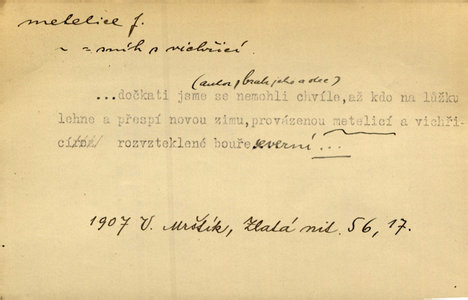 metelice f.
~ = sníh s vichřicí.
(autor, bratr jeho a otec)
...dočkati jsme se nemohli chvíle, až kdo na lůžku
lehne a přespí novou zimu, provázenou metelicí a vichři-
cí rozvzteklené bouře severní ...
1907 V. Mrštík, Zlatá nit. 56, 17.